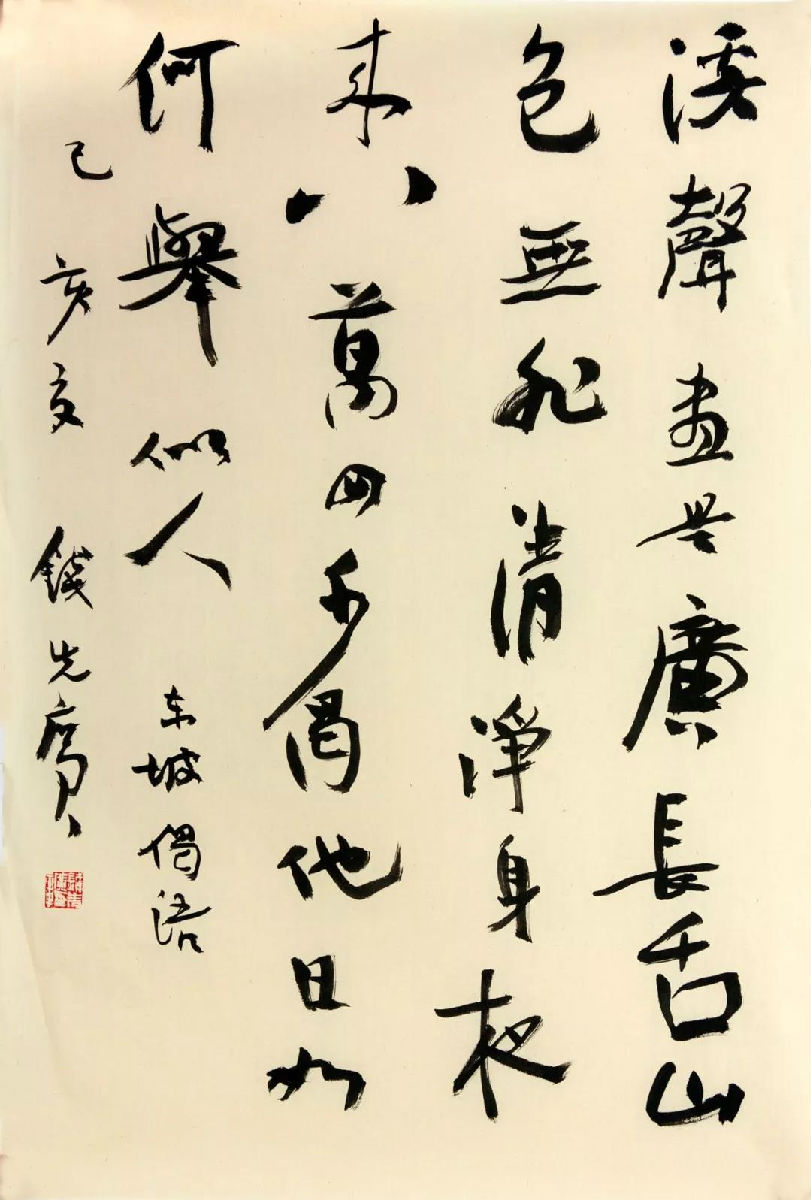 溪聲盡是廣長舌山
色無非清淨身夜
来八萬四千偈他日如
何舉似人 东坡偈語
己亥夏 錢先